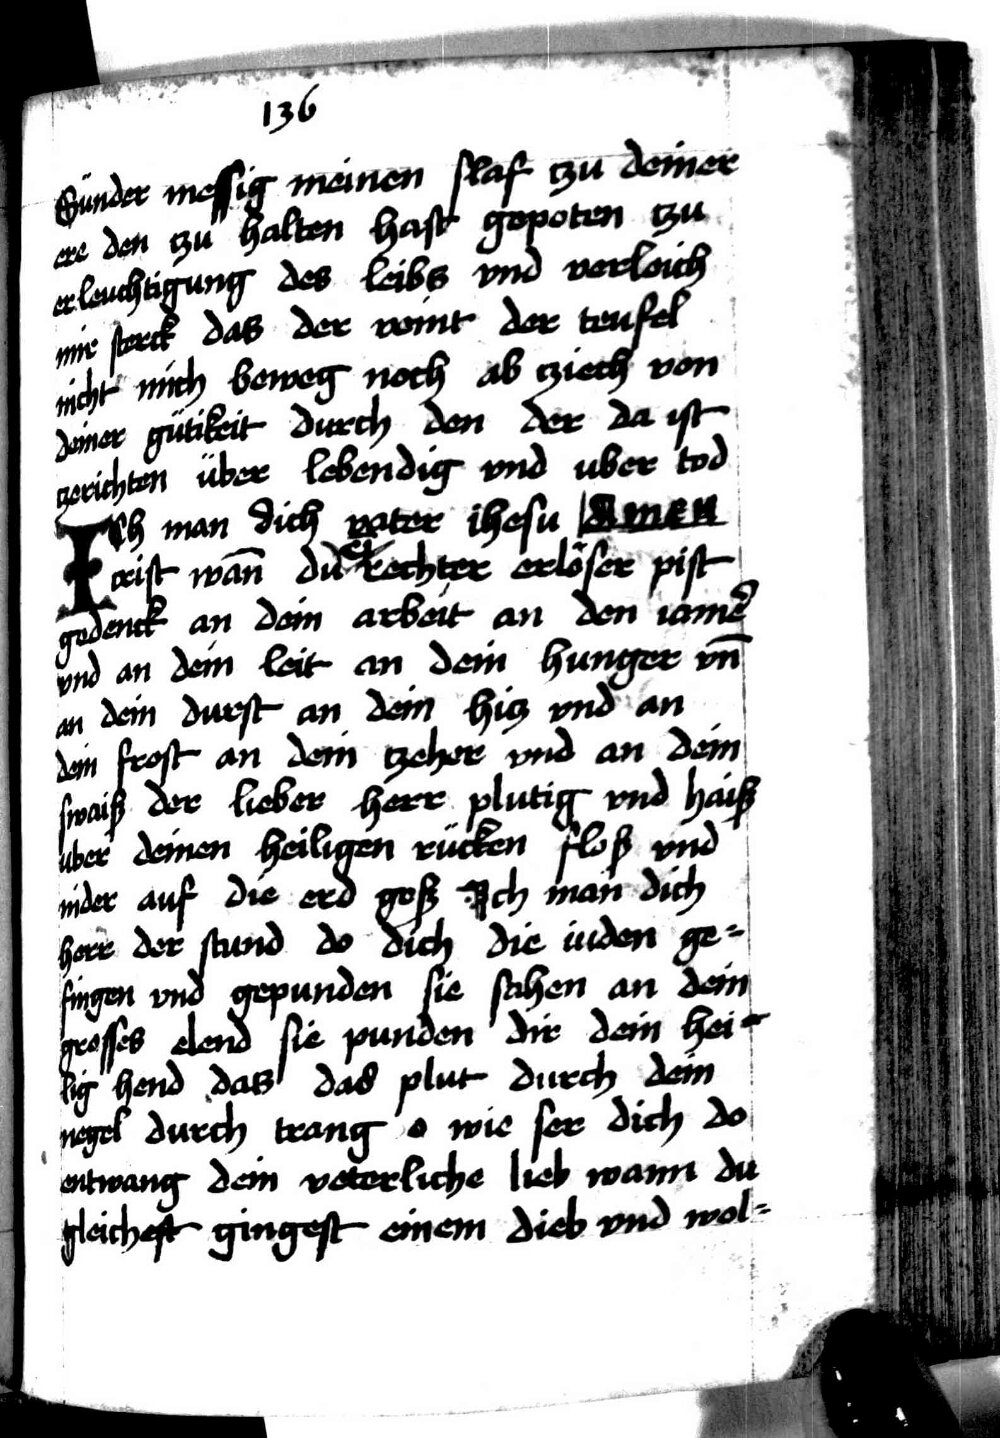 136
Sünder messig meinen slaf tzu deiner
ere den tzu halten hast gepoten tzu
erleuchtigung des leibs vnd verleich
mir sterck das der veint der teufel
nicht mich beweg noch ab tziech von
deiner gütikeit durch den der da ist
tzerichten über lebendig vnd uber tod
Ich man dich vater ihesu Amen
crist wan̄ du rechter erlöser pist
gedenck an dein arbeit an den iamer̄
vnd an dein leit an dein hunger vn̄
an dein durst an dein hitz vnd an
dein frost an dein tzeher vnd an dein
swaiß der lieber herr plutig vnd haiß
uber deinen heiligen rücken floß vnd
nider auf die erd goß Ich man dich
herr der stund do dich die iuden ge=
fingen vnd gepunden sie sahen an dein
grosses elend sie punden dir dein hei=
lig hend das das plut durch dein
negel durch trang o wie ser dich do
entwang dein veterliche lieb wann du
gleichest gingest einem dieb vnd wol=